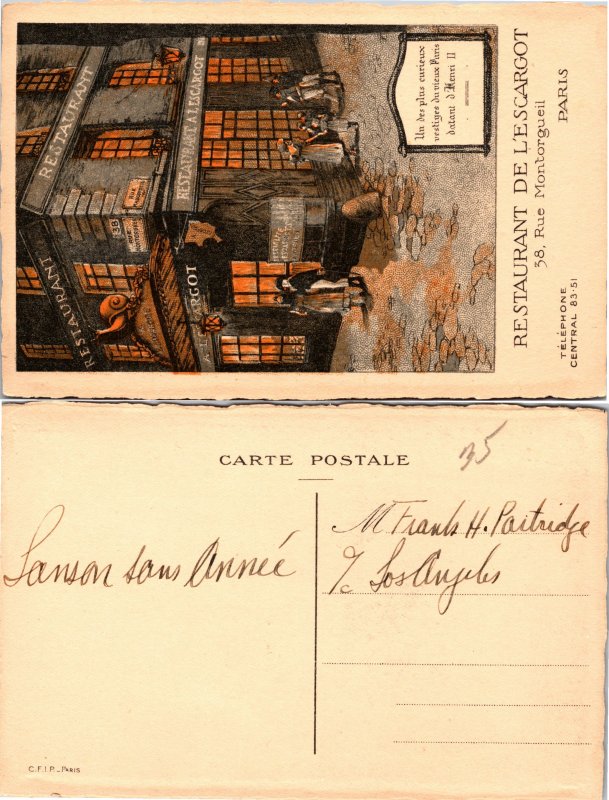 RESTAURANT
RESTAURANT A L'ESCARGOT
RESTAURANT
38
A L'ESCARGOT
Un des plus curieux
vestiges du vieux Paris
datant d'Henri II
RESTAURANT DE L'ESCARGOT
38, Rue Montorgueil
PARIS
TÉLÉPHONE
CENTRAL 83-51
CARTE POSTALE
35
Sanson sans Année
M Frank H. Partridge
% Los Angeles
C.F.I.P._PARIS